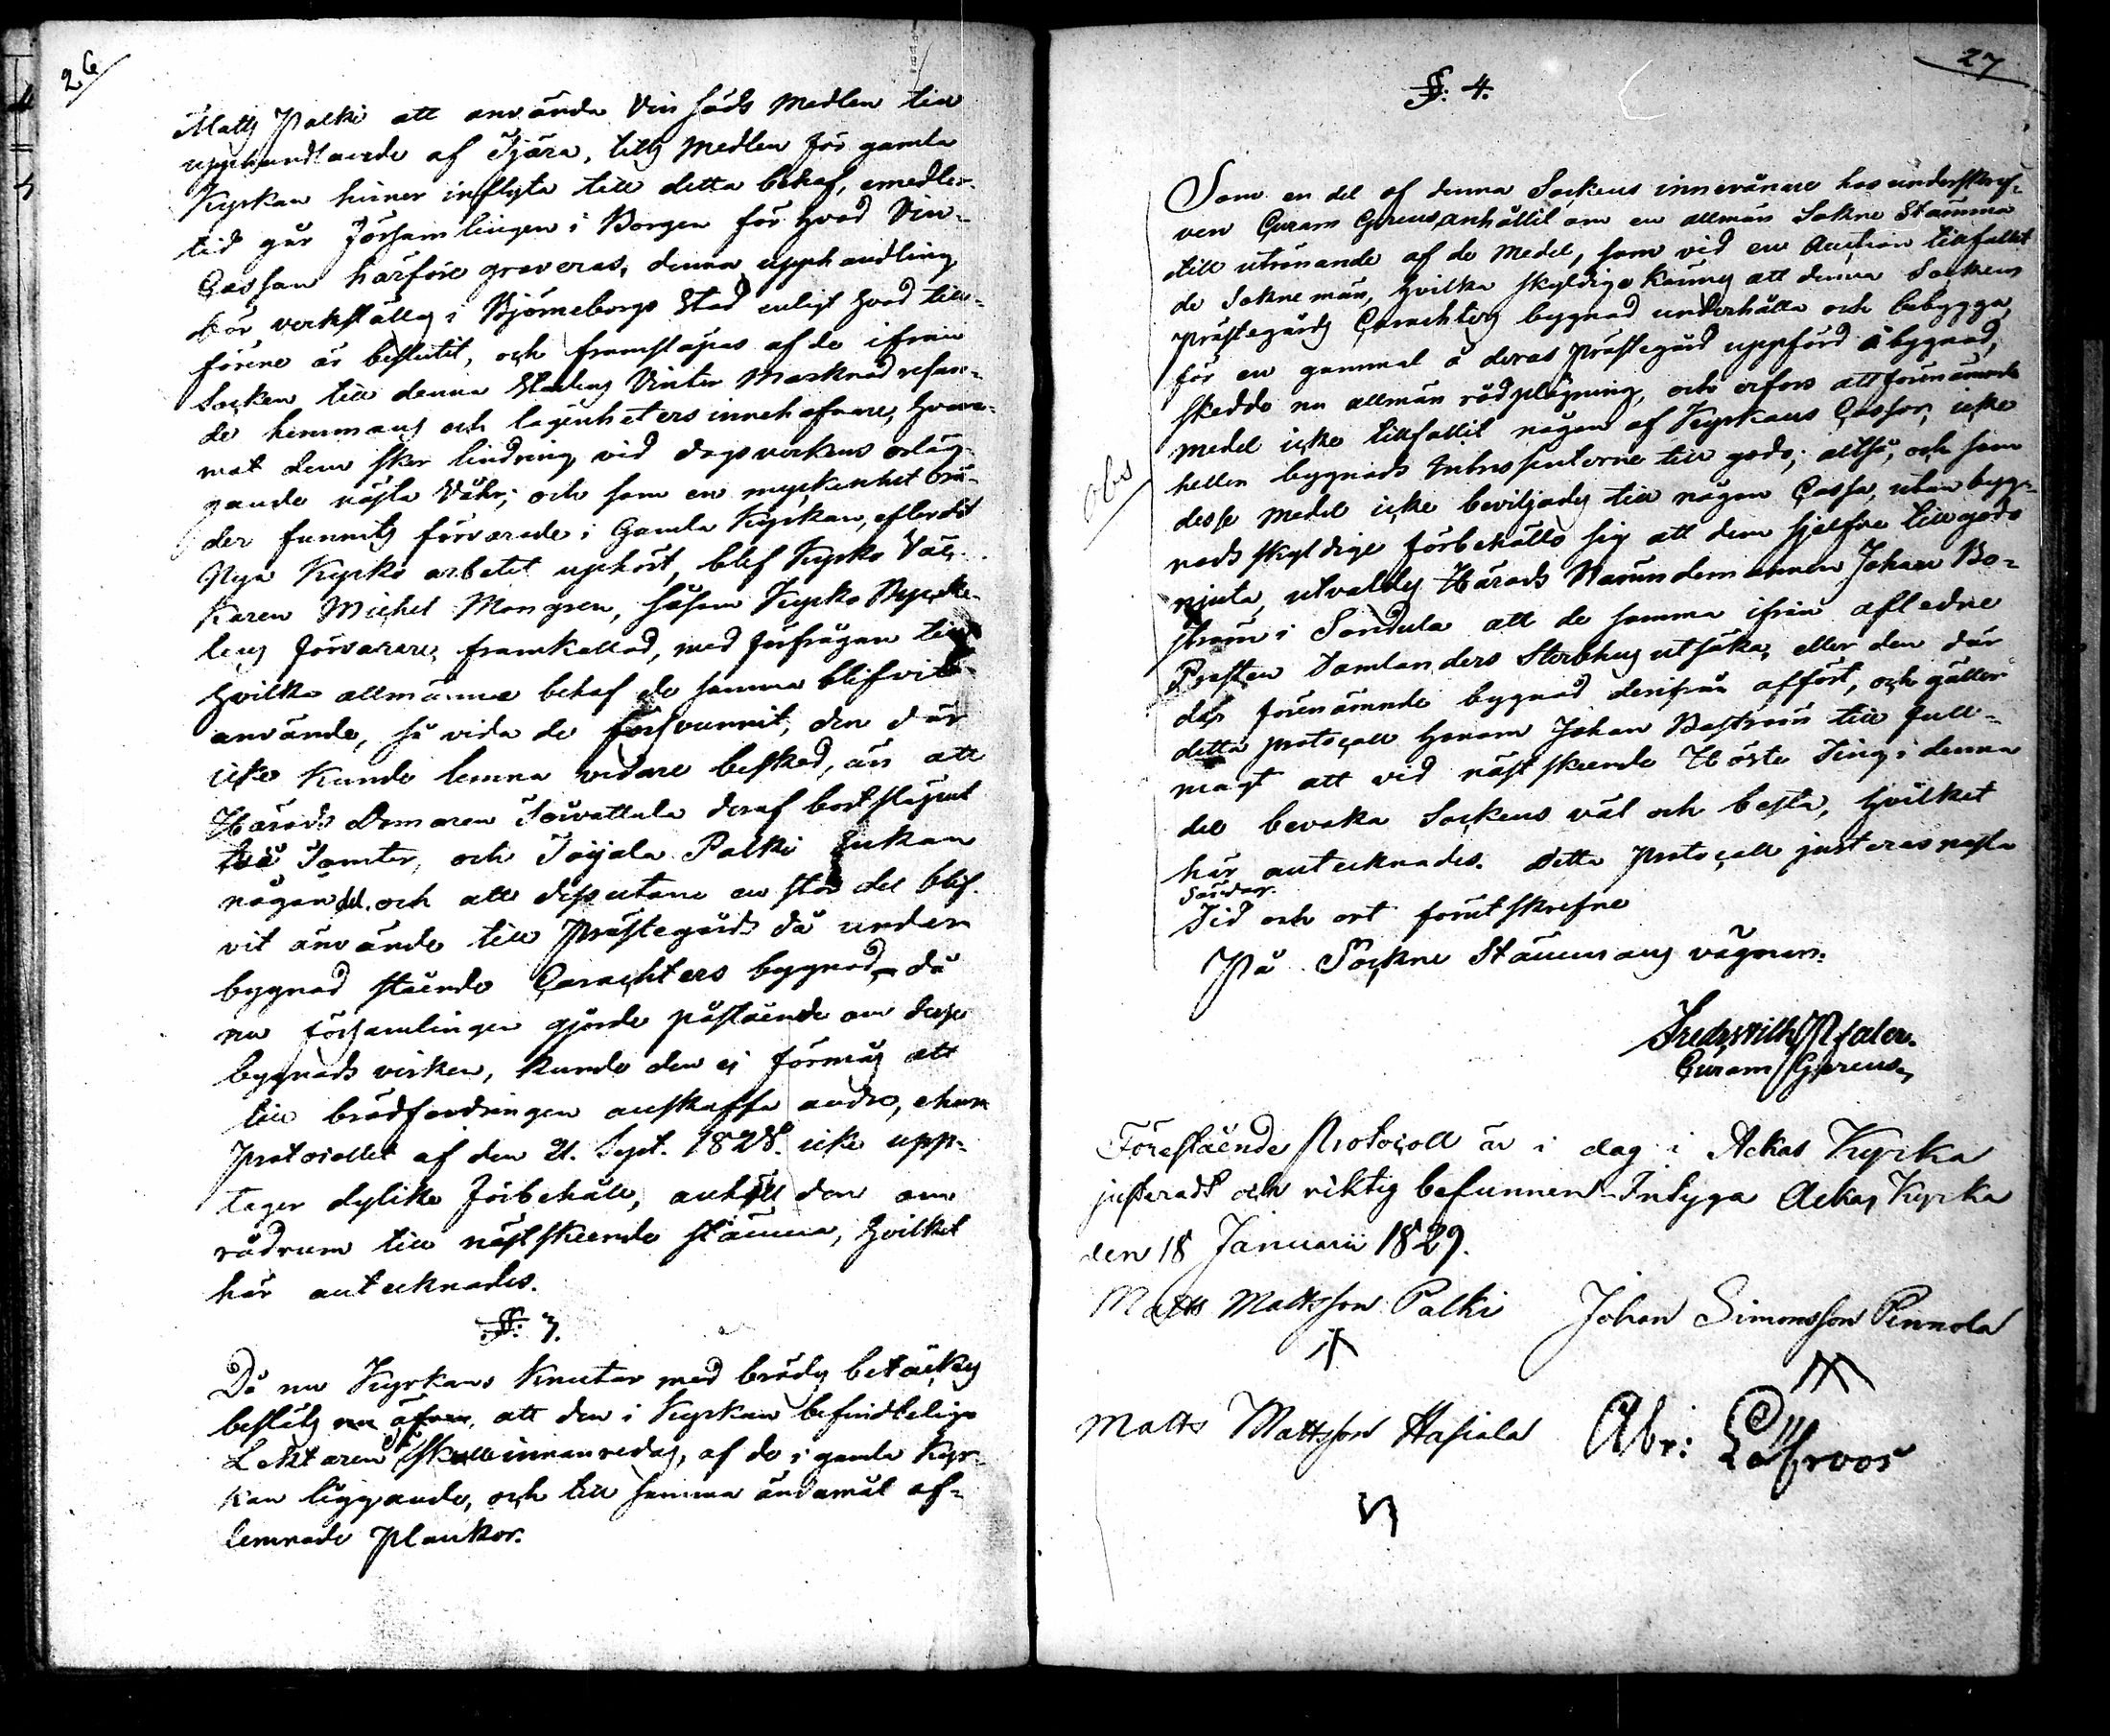 26
Matts Palki att använda Vin säds Medlen till
upphandlande af Tjära, tills Medlen för gamla
Kyrkan hinner inflyta till detta behof, emedler-
tid går Församlingen i Borgen för hvad Vin-
Cassan härföre graveras, denna upphandling
bör verkställas i Björneborgs Stad enligt hvad till-
förene är beslutit, och framsläpas af de ifrån
Socken till denna Stadens Vinter Marknad resan-
de hemmans och lägenheters innehafvare, hvare-
mot dem sker lindring vid dagsverkens erläg-
gande nästa Våhr; och som en myckenhet brä-
der funnits förvarade i Gamla Kyrkan, efter det
Nya Kyrko arbetet uphört, blef Kyrko Väc-
karen Michel Mongren, såsom Kyrko Nycke-
lens Förvarare, framkallad, med förfrågan till
hvilka allmänna behof de samma blifvit
använde, så vida de försvunnit, den där
icke kunde lemna vidare besked, än att
Härads Domaren Sorvattula deraf bortsläpat
två Tomter, och Toijala Palki Enkan
någon del. och att dessutom en stor del blif-
vit använde till Prästegårds då under
bygnad stående Carachters bygnad, då
nu församlingen gjorde påstående om desse
bygnads virken, kunde den ej förmås att
till brädfordringen anskaffa andre, ehuru
Protocollet af den 21. Sept. 1828. icke upp-
tager dylike förbehåll, anhöll den om
rådrum till nästskeende stämma, hvilket
här antecknades.
§: 3.
Då nu Kyrkans Knutar med bräder betäckas
beslöts att den i Kyrkan befindtelige
Lektaren skulle innanredas, af de i gamla Kyr-
kan liggande, och till samma ändamål af-
lemnade Plankor.
27
§: 4.
Som en del af denna Sockens innevånare hos underskref-
ven Curam Gerens anhållit om en allmän Sokne Stämma
till utrönande af de Medel, som vid en Auction tillfallit
de Sokne män, hvilka skyldige kännes att denna Sockens
Prästegårds Carachters bygnad underhålla och bebygga,
för en gammal å deras Prästegård uppförd åbygnad,
skedde nu allmän rådplägning, och erfors att förenämnde
medel icke tillfallit någon af Kyrkans Cassor, icke
heller bygnads Intressenterne till godo; altså, och som
obs
desse medel icke beviljades till någon Cassa, utan bygg-
nads skyldige förbehöllo sig att dem sjelfve tillgodo
njuta, utvaldes Härads Nämndemannen Johan Bo-
ström i Sondula att de samma ifrån afledne
Prosten Tamlanders Sterbhus utsöka, eller den där
des förenämnde bygnad derifrån affört, och gäller
detta protocoll honom Johan Boström till full-
magt att vid näst skeende Höste Ting i denna
del bevaka Sockens väl och bästa, hvilket
här antecknades. Detta Protocoll justeras nästa
Söndag.
Tid och ort förutskrefne
På Sockne Stämmans vägnar.
Fredr Wilh Pfaler.
Curam Gerens,
Förestående Protocoll är i dag i Ackas Kyrka
justeradt och riktig befunnen Intyga Ackas Kyrka
den 18 Januarii 1829.
Matts Mattsson Palki Johan Simonsson Pennola
Matts Mattsson Hasiala Abr: Löfroos